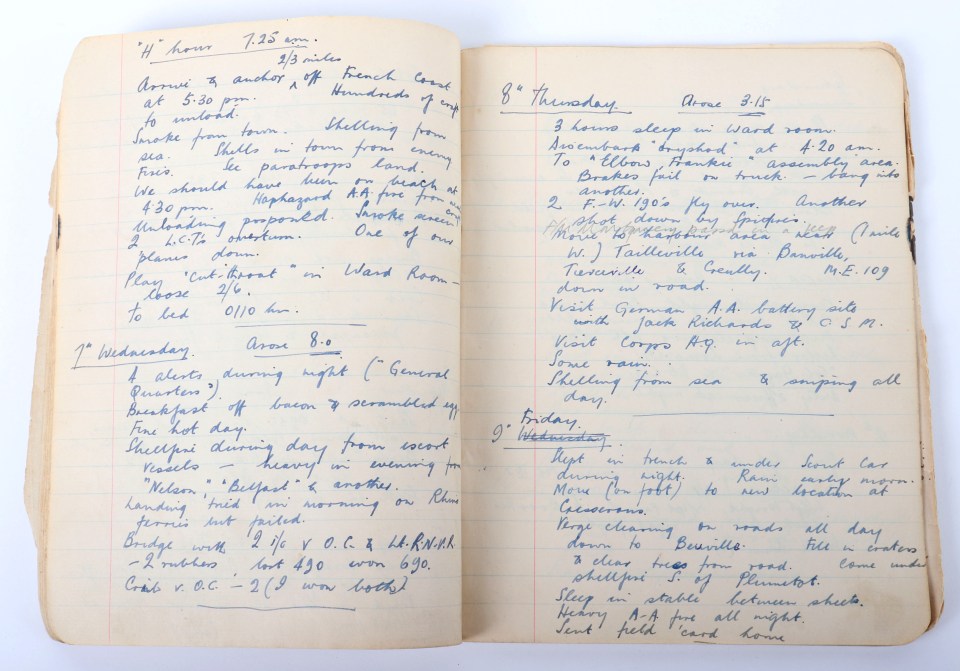 "H" hour 7.25 am.
2/3 miles
Arrive & anchor ^ off French Coast
at 5.30 pm. Hundreds of craft
to unload.
Smoke from town. Shelling from
sea. Shells in town from enemy
Fires. See paratroops land.
We should have been on beach at
4.30 pm. Haphazard A.A. fire from
Unloading proposed. Smoke screen
2 L.C.Ts overturn. One of our
planes down.
Play "Cut-throat" in Ward Room –
loose 2/6.
To bed 0110 hr.
7th Wednesday. Arose 8.0
4 alerts during night ("General
Quarters").
Breakfast off bacon & scrambled egg
Fine hot day.
Shellfire during day from escort
vessels – heavy in evening from
"Nelson," "Belfast" & another.
Landing tried in morning on Rhino
ferries but failed.
Bridge with 2 i/c v O.C. & Lt. R.N.V.R
– 2 rubbers lost 490 won 690.
Crib v. O.C. – 2 (I won both)
8th Thursday. Arose 3.15
3 hours sleep in Ward room.
Disembark "dryshod" at 4.20 am.
To "Elbow, Frankie" assembly area.
Brakes fail on truck. – bang into
another.
2 F.-W. 190's fly over. Another
shot down by Spitfires.
Montgomery passes in a Jeep
Move to harbour area near (1 mile
W.) Tailleville via Banville,
Tierceville & Creully. M.E. 109
down in road.
Visit German A.A. battery site
with Jack Richards & C S M.
Visit Corps H.Q. in aft.
Some rain.
Shelling from sea & sniping all
day.
Friday.
9th Wednesday.
Slept in trench & under Scout Car
during night. Rain early morn.
Move (on foot) to new location at
Cresserons.
Verge clearing on roads all day
down to Beuville. Fill in craters
& clear trees from road. Come under
shellfire S. of Plumetot.
Sleep in stable between sheets.
Heavy A-A fire all night.
Sent field card home